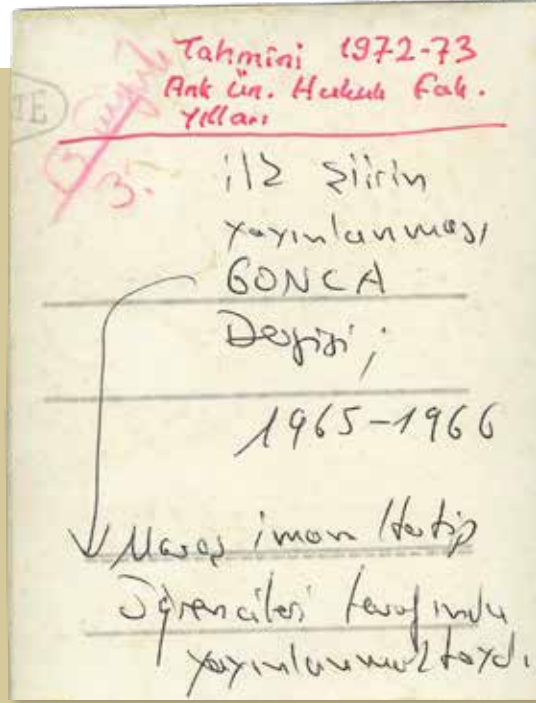 Tahmini 1972-73
Ank Ün. Hukuk Fak.
Yılları
3.
ilk şiirin
yayınlanması
GONCA
Dergisi;
1965-1966
Maraş imam Hatip
Öğrencileri tarafından
yayınlanmaktaydı